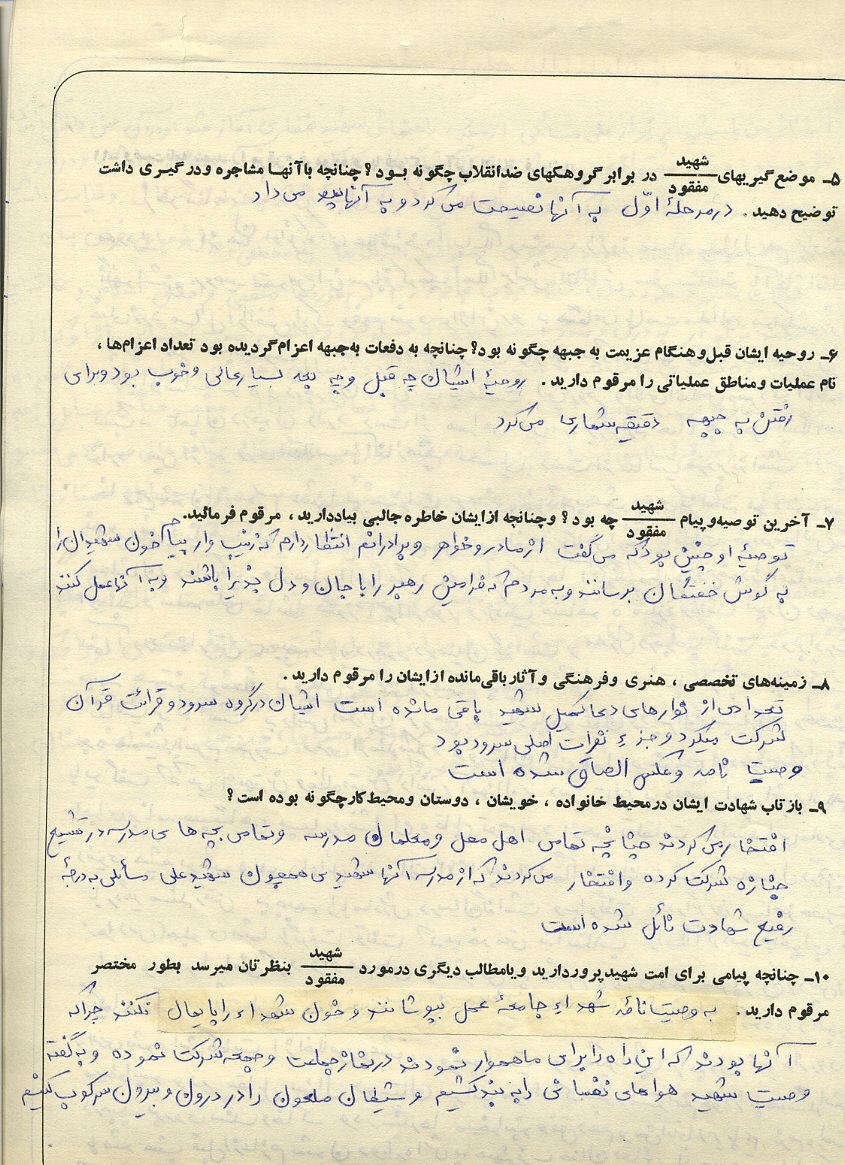 ۵ـ موضع‌گیریهای شهید / مفقود در برابر گروهکهای ضدانقلاب چگونه بود؟ چنانچه باآنها مشاجره ودرگیری داشت
توضیح دهید. در مرحلهٔ اوّل به آنها نصیحت می کرد و به آنها پند می داد
۶ـ روحیه ایشان قبل وهنگام عزیمت به جبهه چگونه بود؟ چنانچه به دفعات به‌جبهه اعزام گردیده بود تعداد اعزام‌ها،
نام عملیات ومناطق عملیاتی را مرقوم دارید. روحیهٔ ایشان چه قبل و چه بعد بسیار عالی و خوب بود و برای
رفتن به جبهه دقیقه شماری می کرد
۷ـ آخرین توصیه‌وپیام شهید / مفقود چه بود؟ وچنانچه ازایشان خاطره جالبی بیاددارید، مرقوم فرمائید.
توصیهٔ او چنین بود که می گفت از مادر و خواهر و برادرانم انتظار دارم که زینب وار پیام خون شهیدان را
به گوش خفتگان برسانند و به مردم که فرامین رهبر را با جان و دل پذیرا باشند و به آنها عمل کنند
۸ـ زمینه‌های تخصصی، هنری وفرهنگی وآثارباقی‌مانده ازایشان را مرقوم دارید.
تعدادی از نوارهای دعا کمیل شهید باقی مانده است ایشان در گروه سرود و قرائت قرآن
شرکت میکرد و جزء نفرات اصلی سرود بود
وصیت نامه و عکس الصاق شده است
۹ـ بازتاب شهادت ایشان درمحیط خانواده، خویشان، دوستان ومحیط‌کارچگونه بوده است؟
افتخار می کردند چنانچه تمامی اهل محل و معلمان مدرسه و تمامی بچه های مدرسه در تشییع
جنازه شرکت کرده و افتخار می کردند که از مدرسه آنها شهیدی همچون شهید علی مسائلی به درجهٔ
رفیع شهادت نائل شده است
۱۰ـ چنانچه پیامی برای امت شهیدپرور دارید ویامطالب دیگری درمورد شهید / مفقود بنظرتان میرسد بطور مختصر
مرقوم دارید. به وصیتنامهٔ شهداء جامهٔ عمل بپوشانند و خون شهداء را پایمال نکنند چرا که
آنها بودند که این راه را برای ما هموار نمودند در نماز جماعت و جمعه شرکت نموده و به گفته
وصیت شهید هواهای نفسانی را به بند کشیم و شیطان ملعون را در درون و بیرون سرکوب کنیم